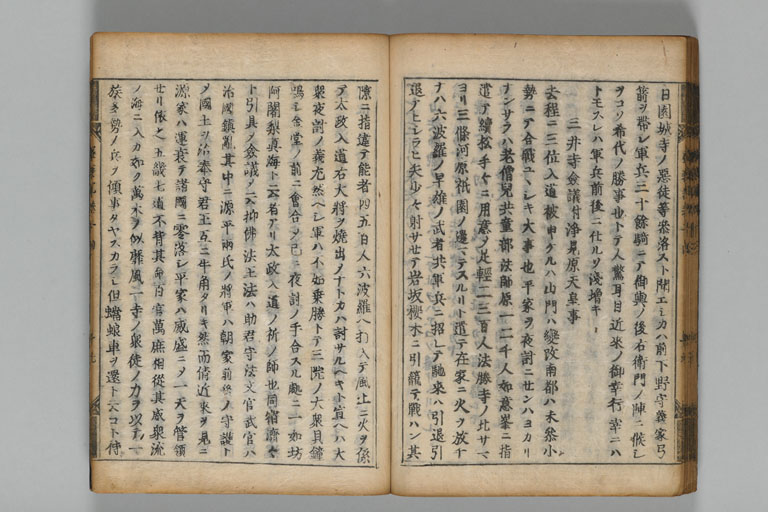 日園城寺ノ悪徒等発落スト聞エシカハ前下野守義家弓
箭ヲ帯シ軍兵三十餘騎ニテ御輿ノ後右衛門ノ陣ニ候シ
ヲコソ希代ノ勝事也トテ人驚耳目近来ノ御幸行幸ニハ
トモスレハ軍兵前後ニ仕ルソ浅増キ
三井寺僉議付浄見原天皇事
去程ニ三位入道被申ケルハ山門ハ変改南都ハ未参小
勢ニテ合戦ユヽシキ大事也平家ヲ夜討ニセンハヨカリ
ナンサラハ老僧児共童部法師原一二千人如意峯ニ指
遣テ續松手々ニ用意メ足軽二三百人法勝寺ノ北サマ
ヨリ三條河原祇園ノ邊マテスルリト遣テ在家ニ火ヲ放テ
ナハ六波羅ノ早雄ノ武者共軍兵ニ招レテ馳来ハ引退引
退テヒシラヒ矢少々射サセテ岩坂櫻本ニ引籠テ戦ハン其
隙ニ指違テ能者四五百人六波羅ヘ打入テ風上ニ火ヲ係
テ太政入道右大将ヲ焼出ノナトカハ討サルヘキト宣ヘハ大
衆夜討ノ義尤然ヘシ軍ハ不如乗勝トテ三院ノ大衆貝鐘
鳴シ金堂ノ前ニ會合ノ已ニ夜討ノ手合スル處ニ一如坊
阿闍梨真海ト云者アリ太政入道ノ祈ノ師也同宿済々
ト引具ノ僉議ノ云抑佛法王法ハ助君守法文官武官ハ
治國鎮乱其中ニ源平両氏ノ将軍ハ朝家前後ノ守護ト
メ國土ヲ治奉守君王互ニ牛角タリキ然而倩近来ヲ見ニ
源家ハ運衰テ諸國ニ零落シ平家ハ威盛ニノ一天ヲ管領
セリ依之五畿七道不背其命百官萬庶相從其威衆流
ノ海ニ入カ如ク萬木ノ似靡風一寺ノ衆徒ノ力ヲ以テ
族多勢ノ兵ヲ傾事タヤスカラシ但蟷螂車ヲ還ト云コト侍